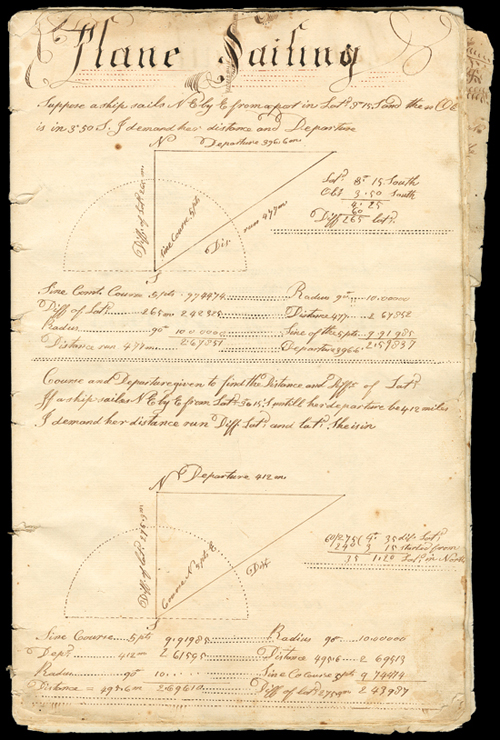 Plane Sailing
Suppose a ship sails N E by E from a port in Lat. 8° 15 S and then Ob
is in 3° 50 S. I demand her distance and Departure
N Departure 396.6 m
Diff of Lat. 265 m
Sine Course 5 pts
Dis run 477 m
S
Lat. 8° 15 South
Obs 3 . 50 South
4 . 25
60
Diff 265 Lat.
Sine Comt. Course 5 pts 9 74474 Radius 90° 10.00000
Diff of Lat. 265 m 2 42325 Distance 477 2 67852
Radius 90° 10 00000 Sine of the 5 pts 9.91985
Distance run 477 m 2 67851 Departure 396.6 2.59837
Course and Departure given to find the Distance and Diff of Lat.
If a ship sailes N E by E from Lat. 3° 15 S untill her departure be 412 miles
I demand her distance run Diff Lat. and lat. She is in
N Departure 412 m
Diff of Lat. 275.3 m
Course N 5 pts E
Dis
60)275(4° 35 dif. Lat.
240 3 15 started from
35 1.20 Lat. in North
Sine Course 5 pts 9.91985 Radius 90° 10.00000
Dep. 412 m 2 61595 Distance 495.6 2 69513
Radius 90° 10 Sine Co course 5 pts 9 74474
Distance = 495.6 m 2.69610 Diff of Lat. 275.9 m 2 43987